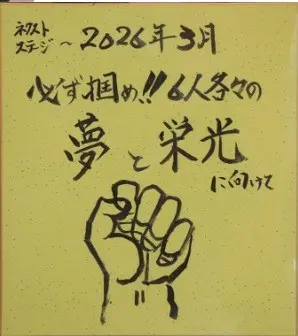 ネクスト
ステージ～2026年3月
必ず掴め!!6人各々の
夢と栄光
に向けて